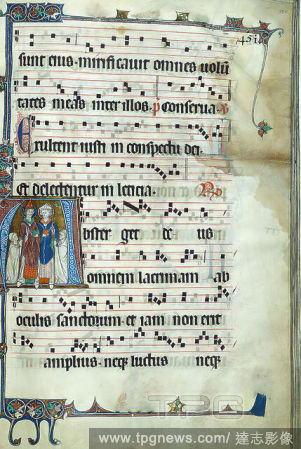 sunt eius mirificavit omnes volũ
tates meas inter illos. p Conserva. v
Exultent iusti in conspectu dei
Et delectentur in leticia. Ro
Abster get de us
omnem lacrimam ab
oculis sanctorum et iam non erit
amplius neqȝ luctus neqȝ
TPG
www.tpgnews.com/ 達志影像